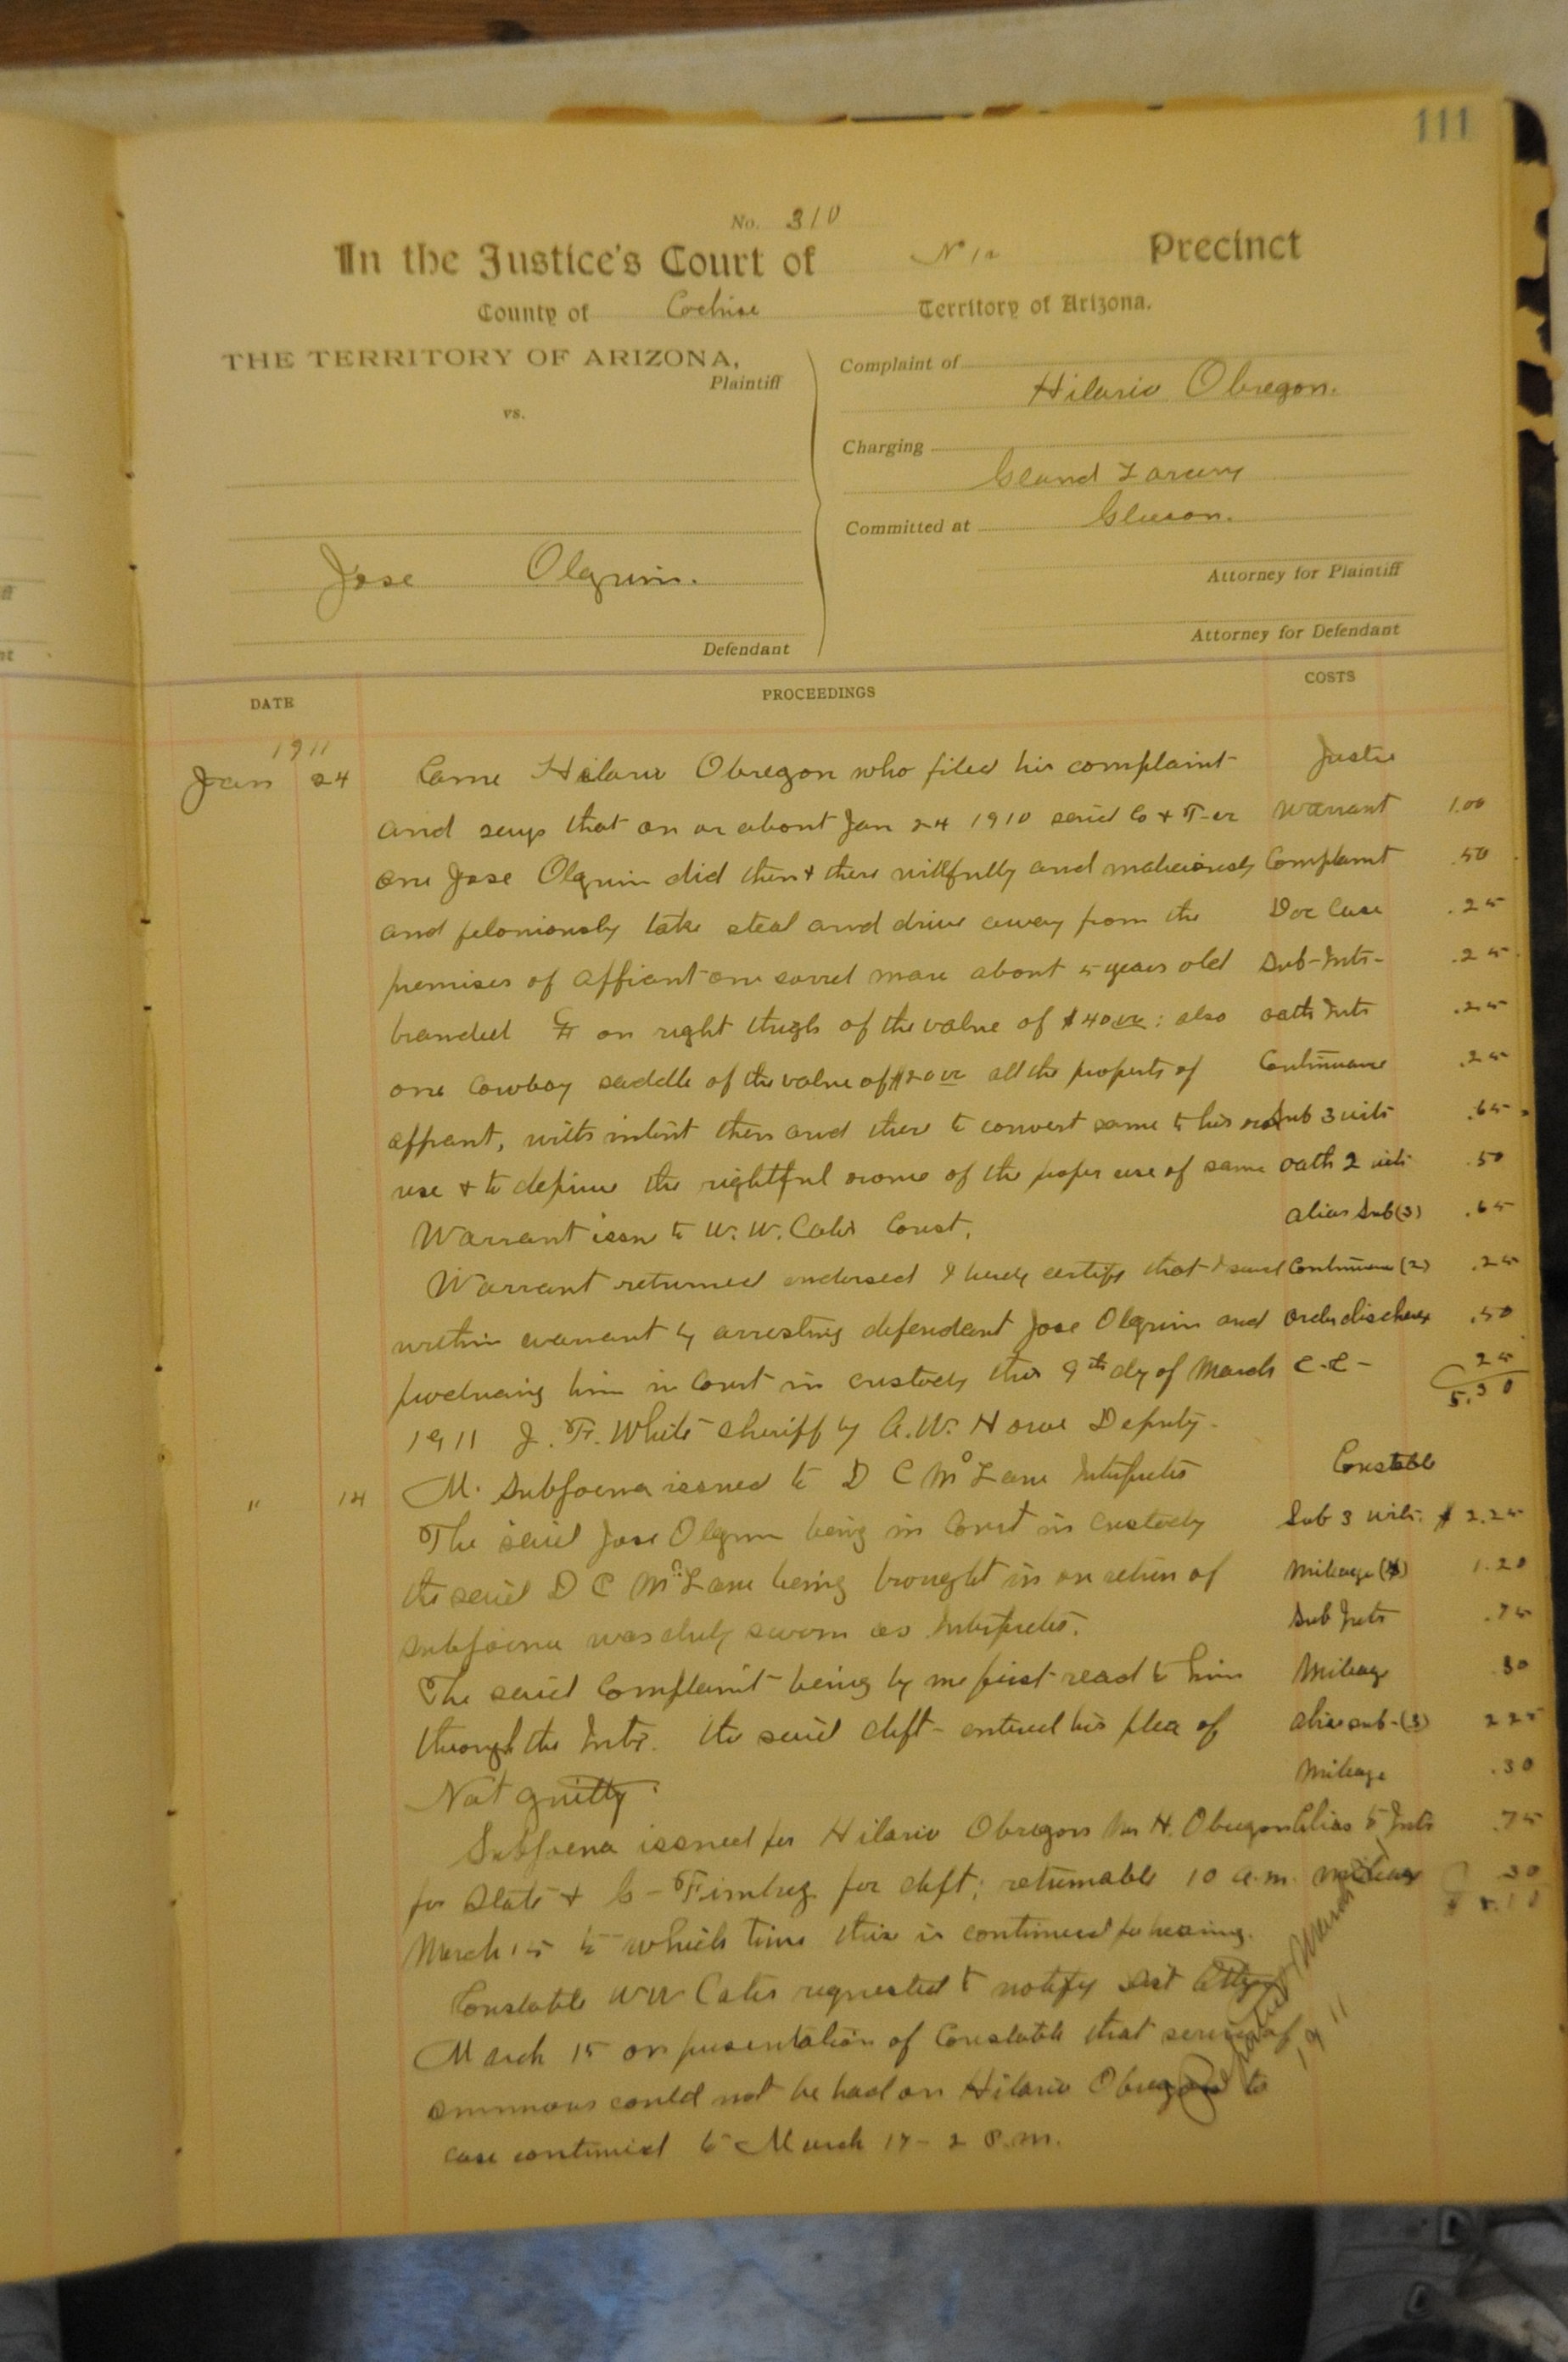 111
No. 310
In the Justice's Court of No 12 Precinct
County of Cochise Territory of Arizona.
THE TERRITORY OF ARIZONA,
Plaintiff
vs.
Jose Olguin.
Defendant
Complaint of
Hilario Obregon.
Charging
Grand Larceny
Committed at Gleeson.
Attorney for Plaintiff
Attorney for Defendant
DATE PROCEEDINGS COSTS
1911
Jan 24 Came Hilario Obregon who filed his complaint Justice
and says that on or about Jan 24 1910 said Co & T-er Warrant 1.00
one Jose Olguin did then & there willfully and maliciously Complaint .50
and feloniously take steal and drive away from the Doc Case .25
premises of affiant one sorrel mare about 5 years old Sub-Intr- .25
branded on right thigh of the value of $40 00: also oath Intr .25
one Cowboy saddle of the value of $20 00 all the property of Continuance .25
affiant, with intent then and there to convert same to his own Sub 3 wits .65
use & to deprive the rightful owner of the proper use of same oath 2 wits .50
Warrant issu to W. W. Cates Const. alias Sub (3) .65
Warrant returned endorsed I hereby certify that I served Continuance (2) .25
within warrant by arresting defendant Jose Olguin and order discharge .50
producing him in Court in custody this 9th day of March C.C- 25
5.30
1911 J. F. White Sheriff by A. W. Howe Deputy.
" 14 M. Subpoena issued to D C McLane Interpreter Constable
The said Jose Olguin being in Court in custody Sub 3 wits. $ 2.25
the said D C McLane being brought in on return of Mileage (4) 1.20
subpoena was duly sworn as Interpreter. Sub Intr .75
The said Complaint being by me first read to him Mileage 30
through the Intr. the said deft- entered his plea of alias sub-(3) 225
Not guilty. Mileage .30
Subpoena issued for Hilario Obregon Mrs H. Obregon Alias to Intr .75
for State & G- for deft; returnable 10 a.m. mileage 30
March 15 to which time this is continued for hearing.
Constable WW Cates requested to notify Dist Atty
March 15 on presentation of Constable that service of
summons could not be had on Hilario Obregon
case continued to March 17- 2 P.m.
1911